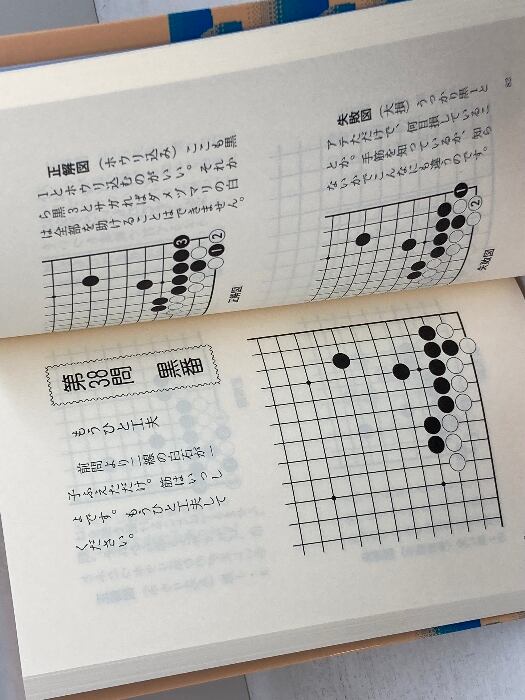 正解図（ホウリ込み）ここも黒
1とホウリ込むのがいい。それか
ら黒3とサガればダメヅマリの白
は全部を助けることはできません。
3
1
2
正解図
失敗図（大損）うっかり黒1と
アテただけで、何目損しているこ
とか。手筋を知っているか、知ら
ないかでこんなにも違うのです。
1
2
失敗図
第38問 黒番
もうひと工夫
前問より二線の白石が一
子ふえただけ。筋はいっし
ょです。もうひと工夫して
ください。